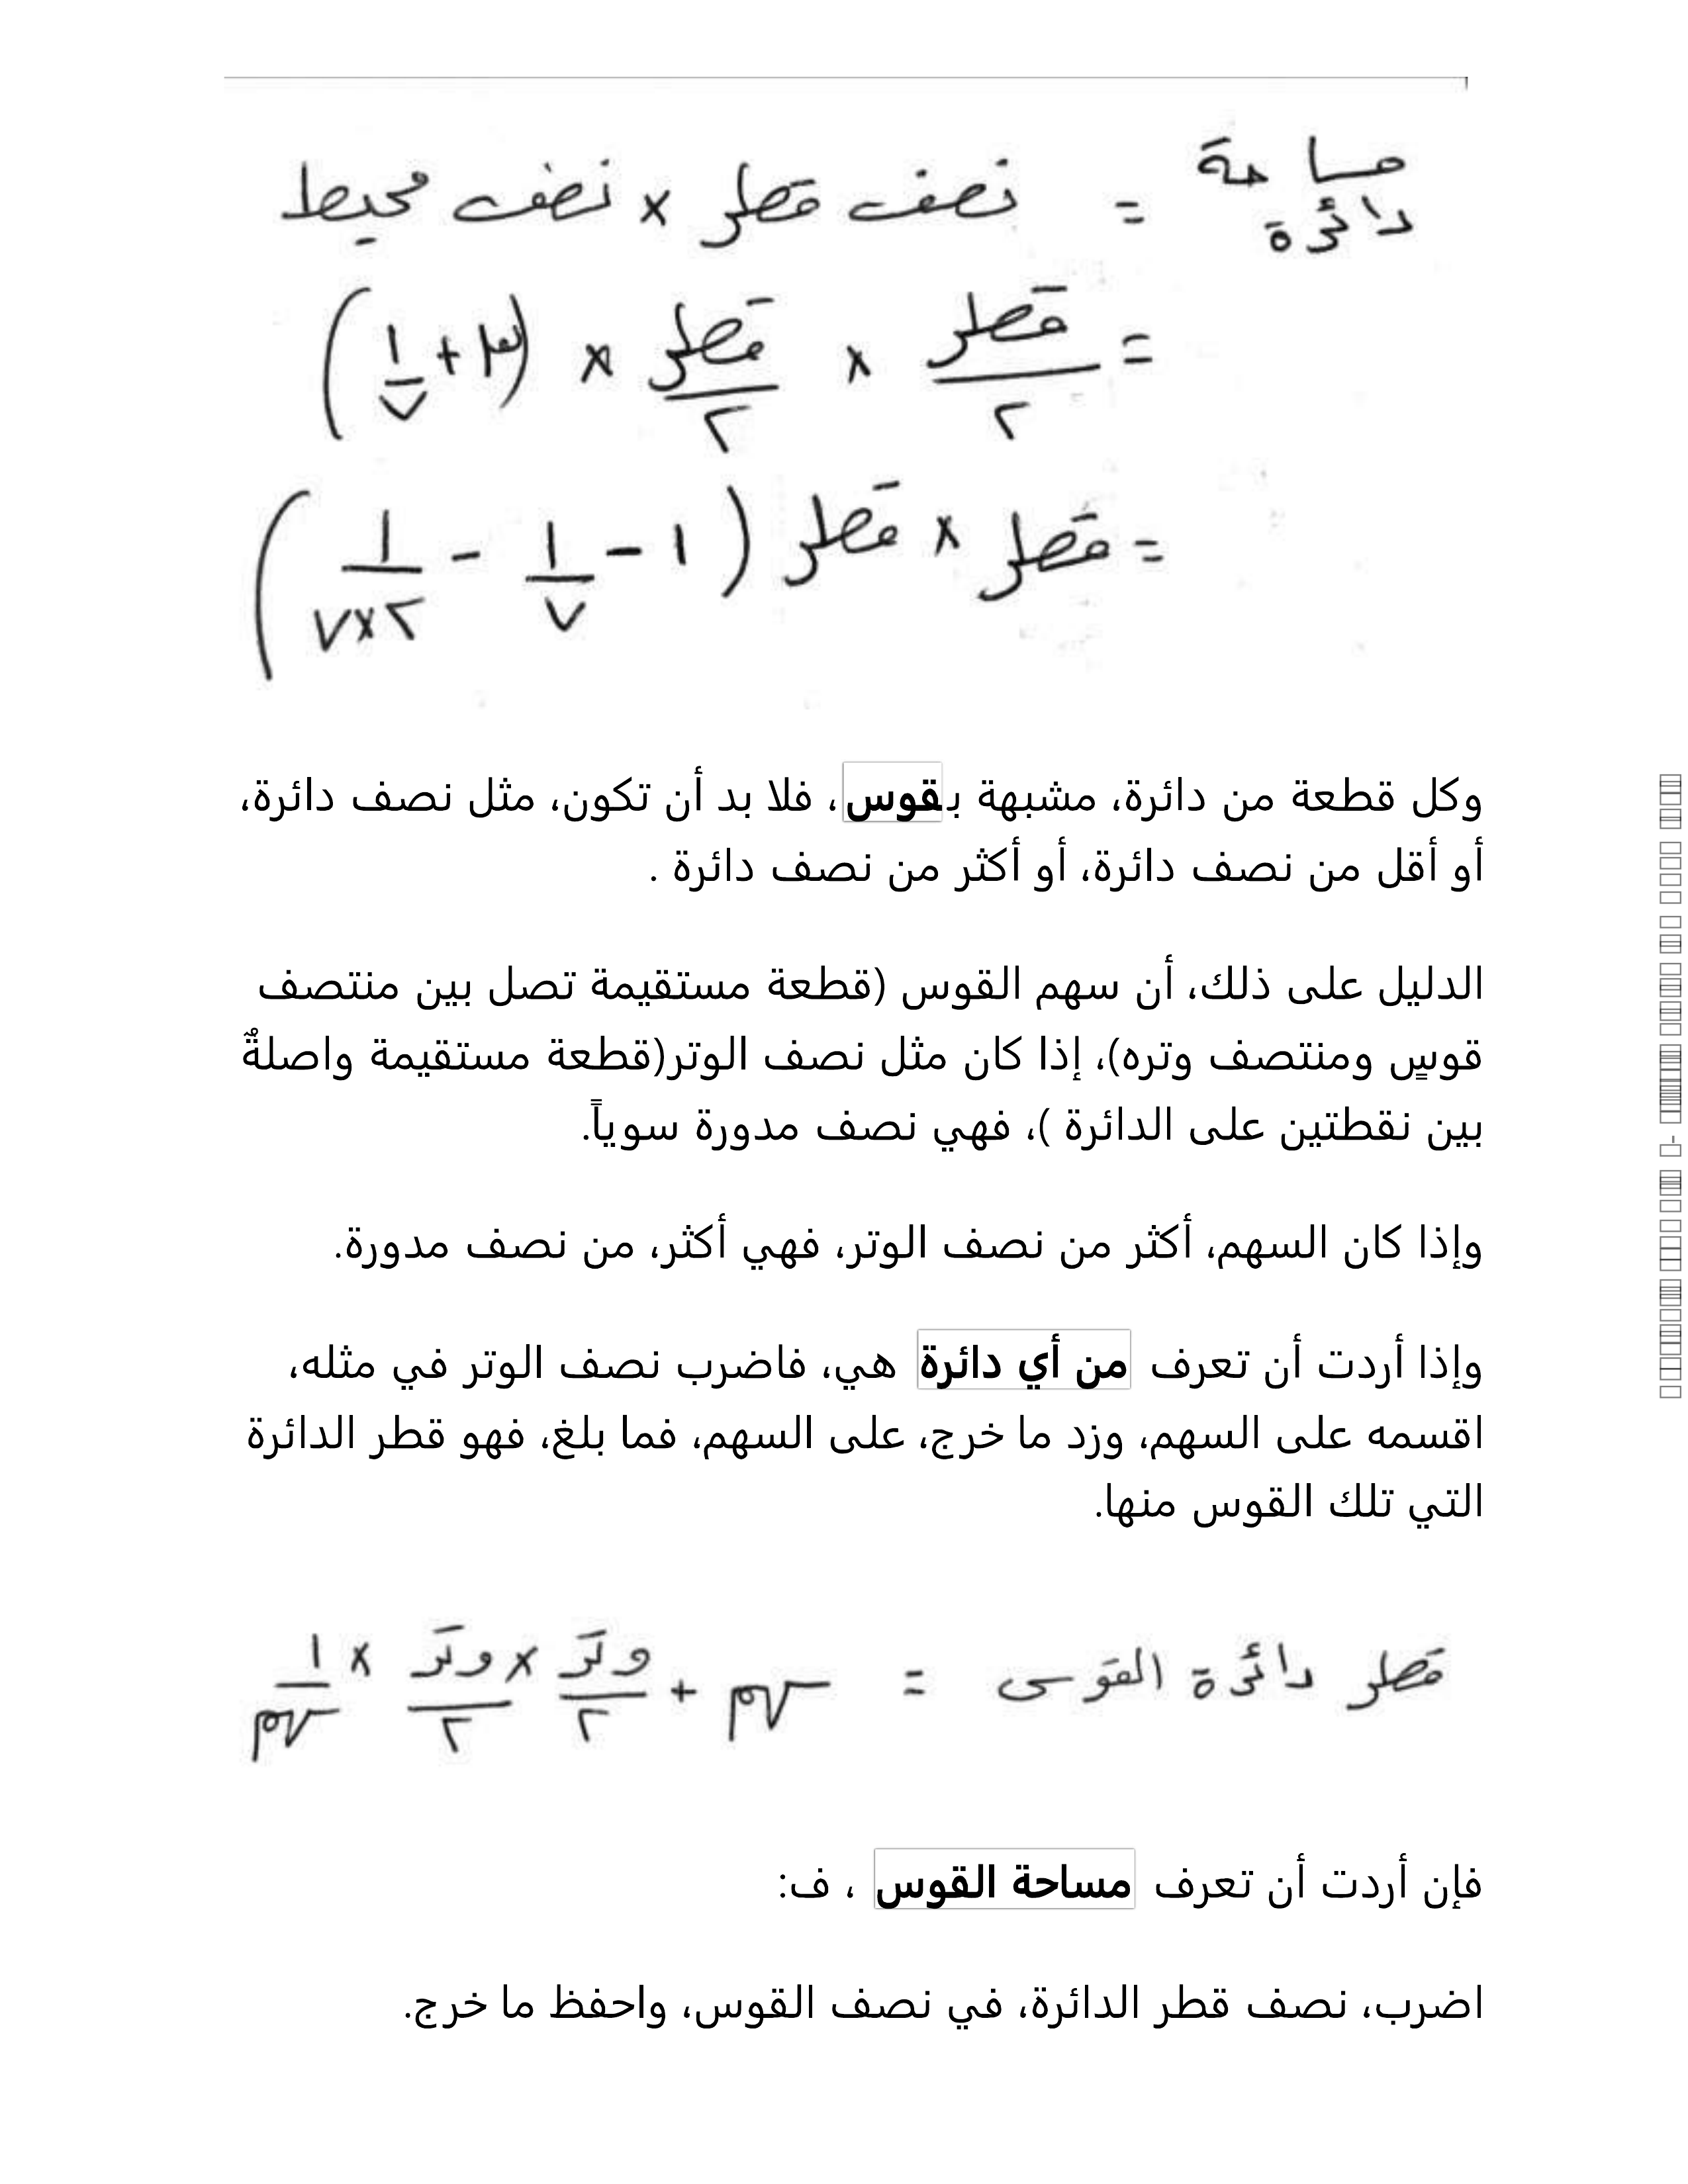 مساحة دائرة = نصف قطر × نصف محيط
= قطر/٢ × قطر/٢ × (٣ + ١/٧)
= قطر × قطر (١ - ١/٧ - ١/٢×٧)
وكل قطعة من دائرة، مشبهة بقوس، فلا بد أن تكون، مثل نصف دائرة،
أو أقل من نصف دائرة، أو أكثر من نصف دائرة .
الدليل على ذلك، أن سهم القوس (قطعة مستقيمة تصل بين منتصف
قوسٍ ومنتصف وتره)، إذا كان مثل نصف الوتر(قطعة مستقيمة واصلةٌ
بين نقطتين على الدائرة )، فهي نصف مدورة سوياً.
وإذا كان السهم، أكثر من نصف الوتر، فهي أكثر، من نصف مدورة.
وإذا أردت أن تعرف من أي دائرة هي، فاضرب نصف الوتر في مثله،
اقسمه على السهم، وزد ما خرج، على السهم، فما بلغ، فهو قطر الدائرة
التي تلك القوس منها.
قطر دائرة القوس = سهم + وتر/٢ × وتر/٢ × ١/سهم
فإن أردت أن تعرف مساحة القوس ، ف:
اضرب، نصف قطر الدائرة، في نصف القوس، واحفظ ما خرج.